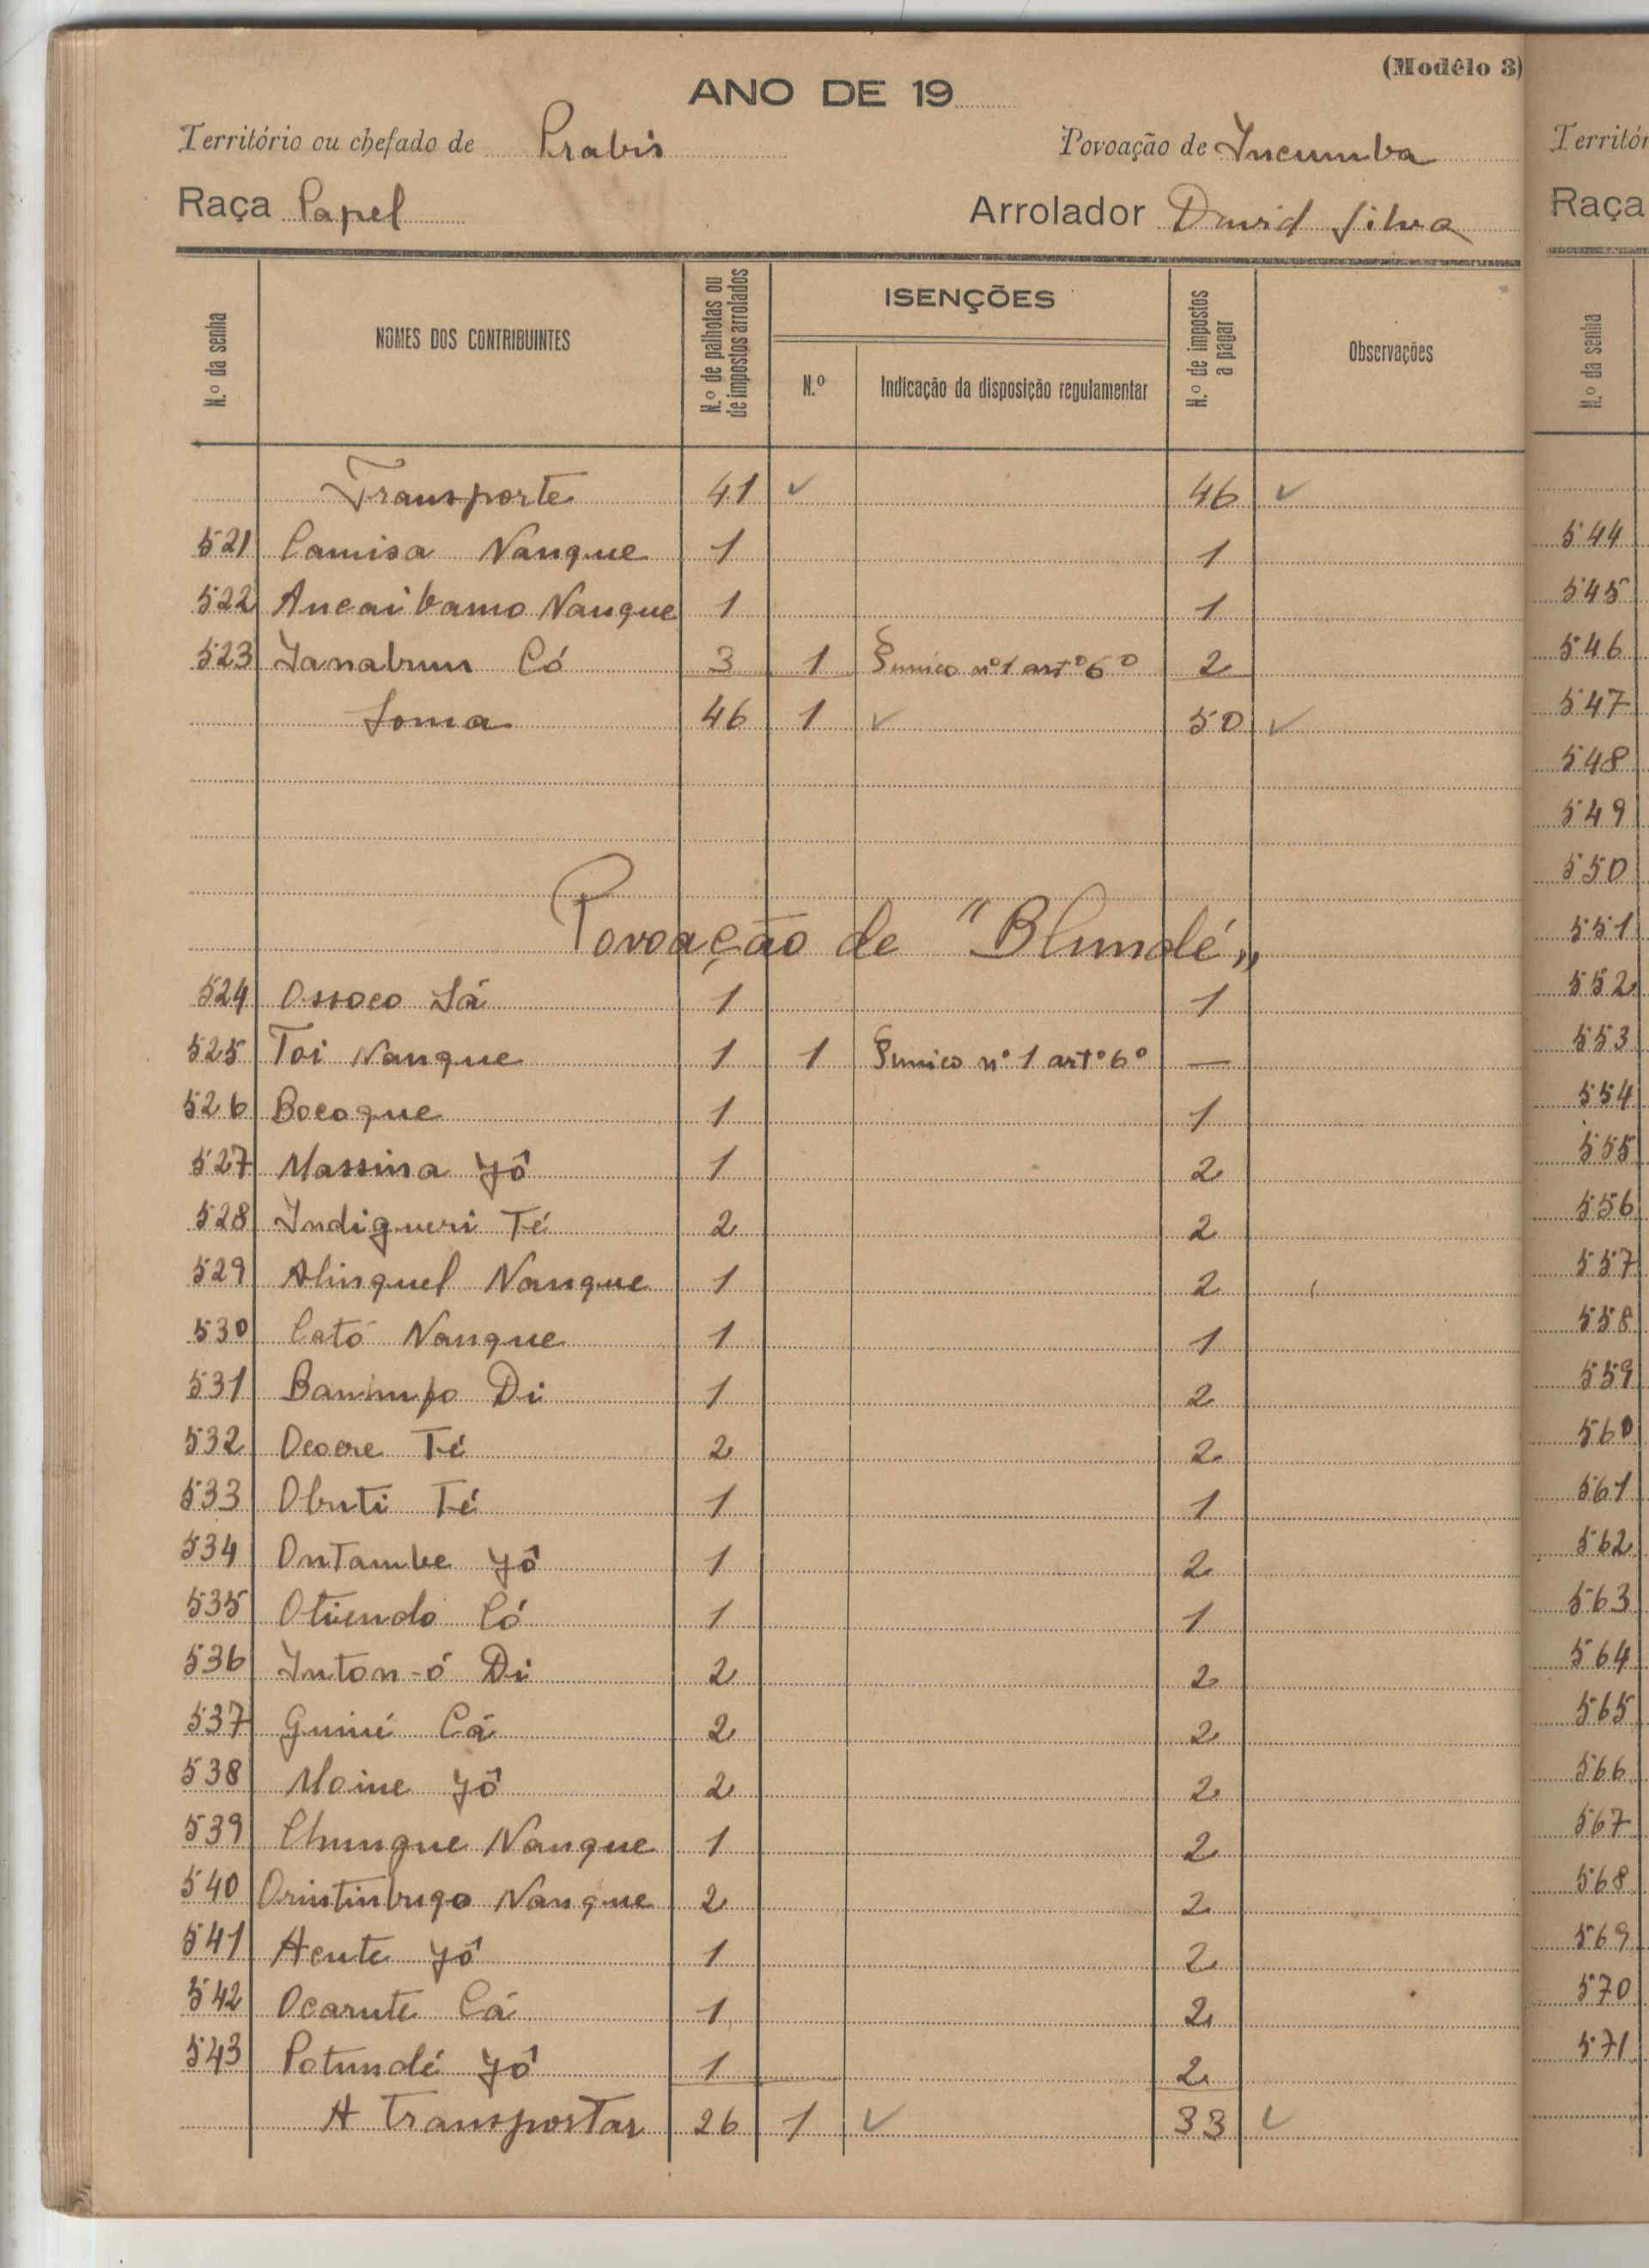 (Modêlo 3)
ANO DE 19
Território ou chefado de Prabis Povoação de Incumba
Raça Papel Arrolador David Silva
N.º da senha NOMES DOS CONTRIBUINTES N.º de palhotas ou de impostos arrolados ISENÇÕES N.º Indicação da disposição regulamentar N.º de impostos a pagar Observações
Transporte 41 ✓ 46 ✓
521 Camisa Nanque 1 1
522 Ancaibamo Nanque 1 1
523 Ianabum Có 3 1 § unico nº 1 artº 6º 2
Soma 46 1 ✓ 50 ✓
Povoação de "Blundé„
524 Ossoco Sá 1 1
525 Toi Nanque 1 1 § unico nº 1 artº 6º —
526 Bocoque 1 1
527 Massina Yô 1 2
528 Indigueri Té 2 2
529 Alinquel Nanque 1 2
530 Cató Nanque 1 1
531 Banimpo Di 1 2
532 Decere Té 2 2
533 Obuti Té 1 1
534 Ontambe Yô 1 2
535 Otiendo Có 1 1
536 Inton-ó Di 2 2
537 Guiné Cá 2 2
538 Moine Yô 2 2
539 Chungue Nanque 1 2
540 Orintinbugo Nanque 2 2
541 Acute Yô 1 2
542 Ocarute Cá 1 2
543 Potundé Yô 1 2
A Transportar 26 1 ✓ 33 ✓
Territór
Raça
N.º da senha
544
545
546
547
548
549
550
551
552
553
554
555
556
557
558
559
560
561
562
563
564
565
566
567
568
569
570
571